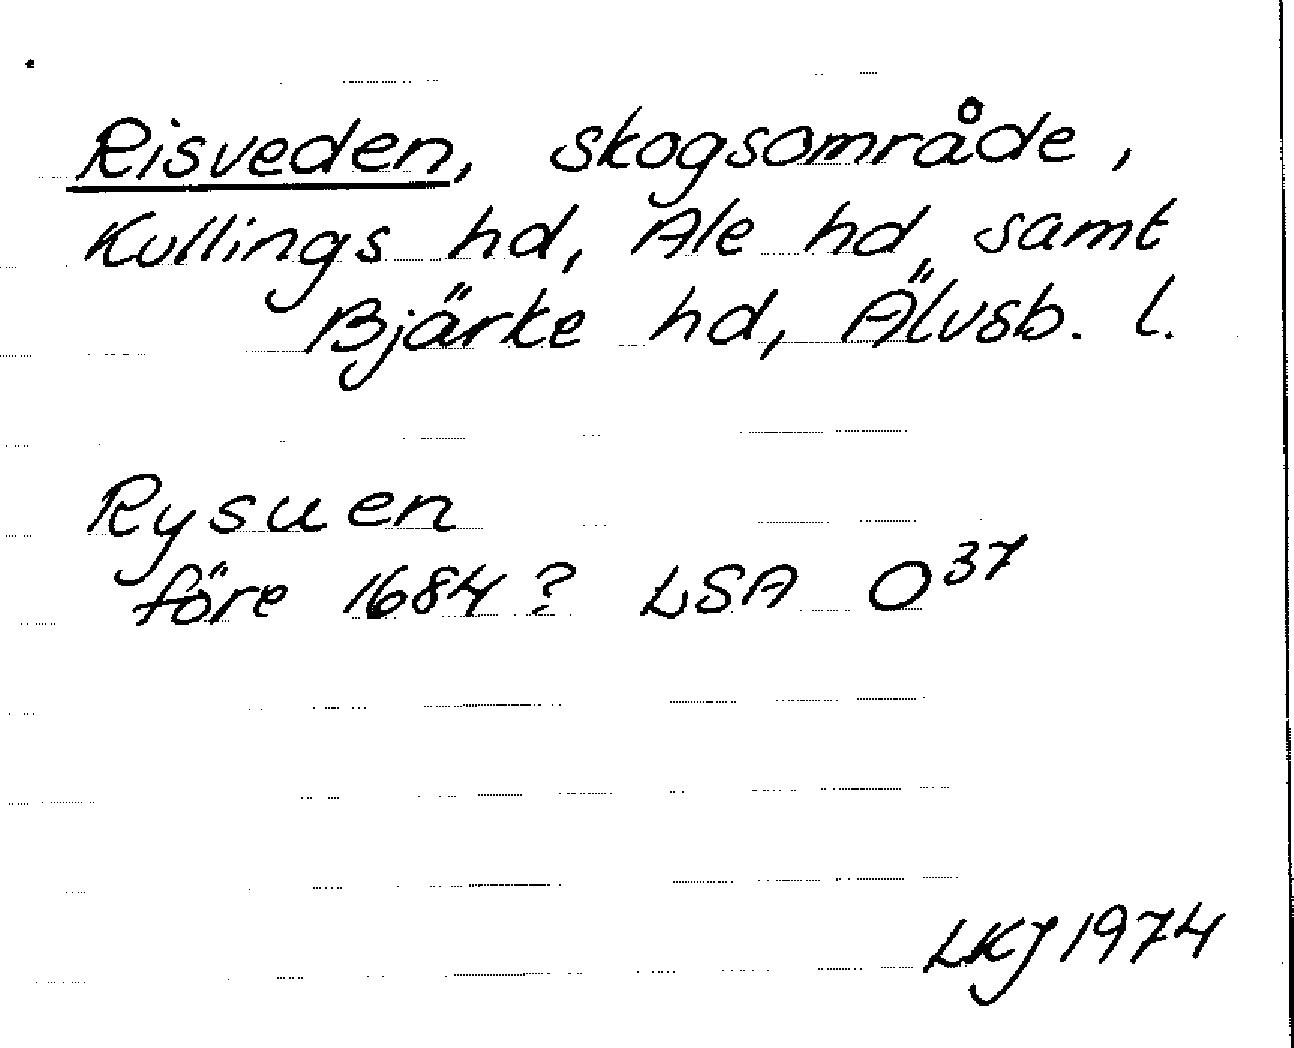 Risveden, skogsområde,
Kullings hd, Ale hd, samt
Bjärke hd, Älvsb. l.
Rysuen
före 1684? LSA O³⁷
LKJ 1974